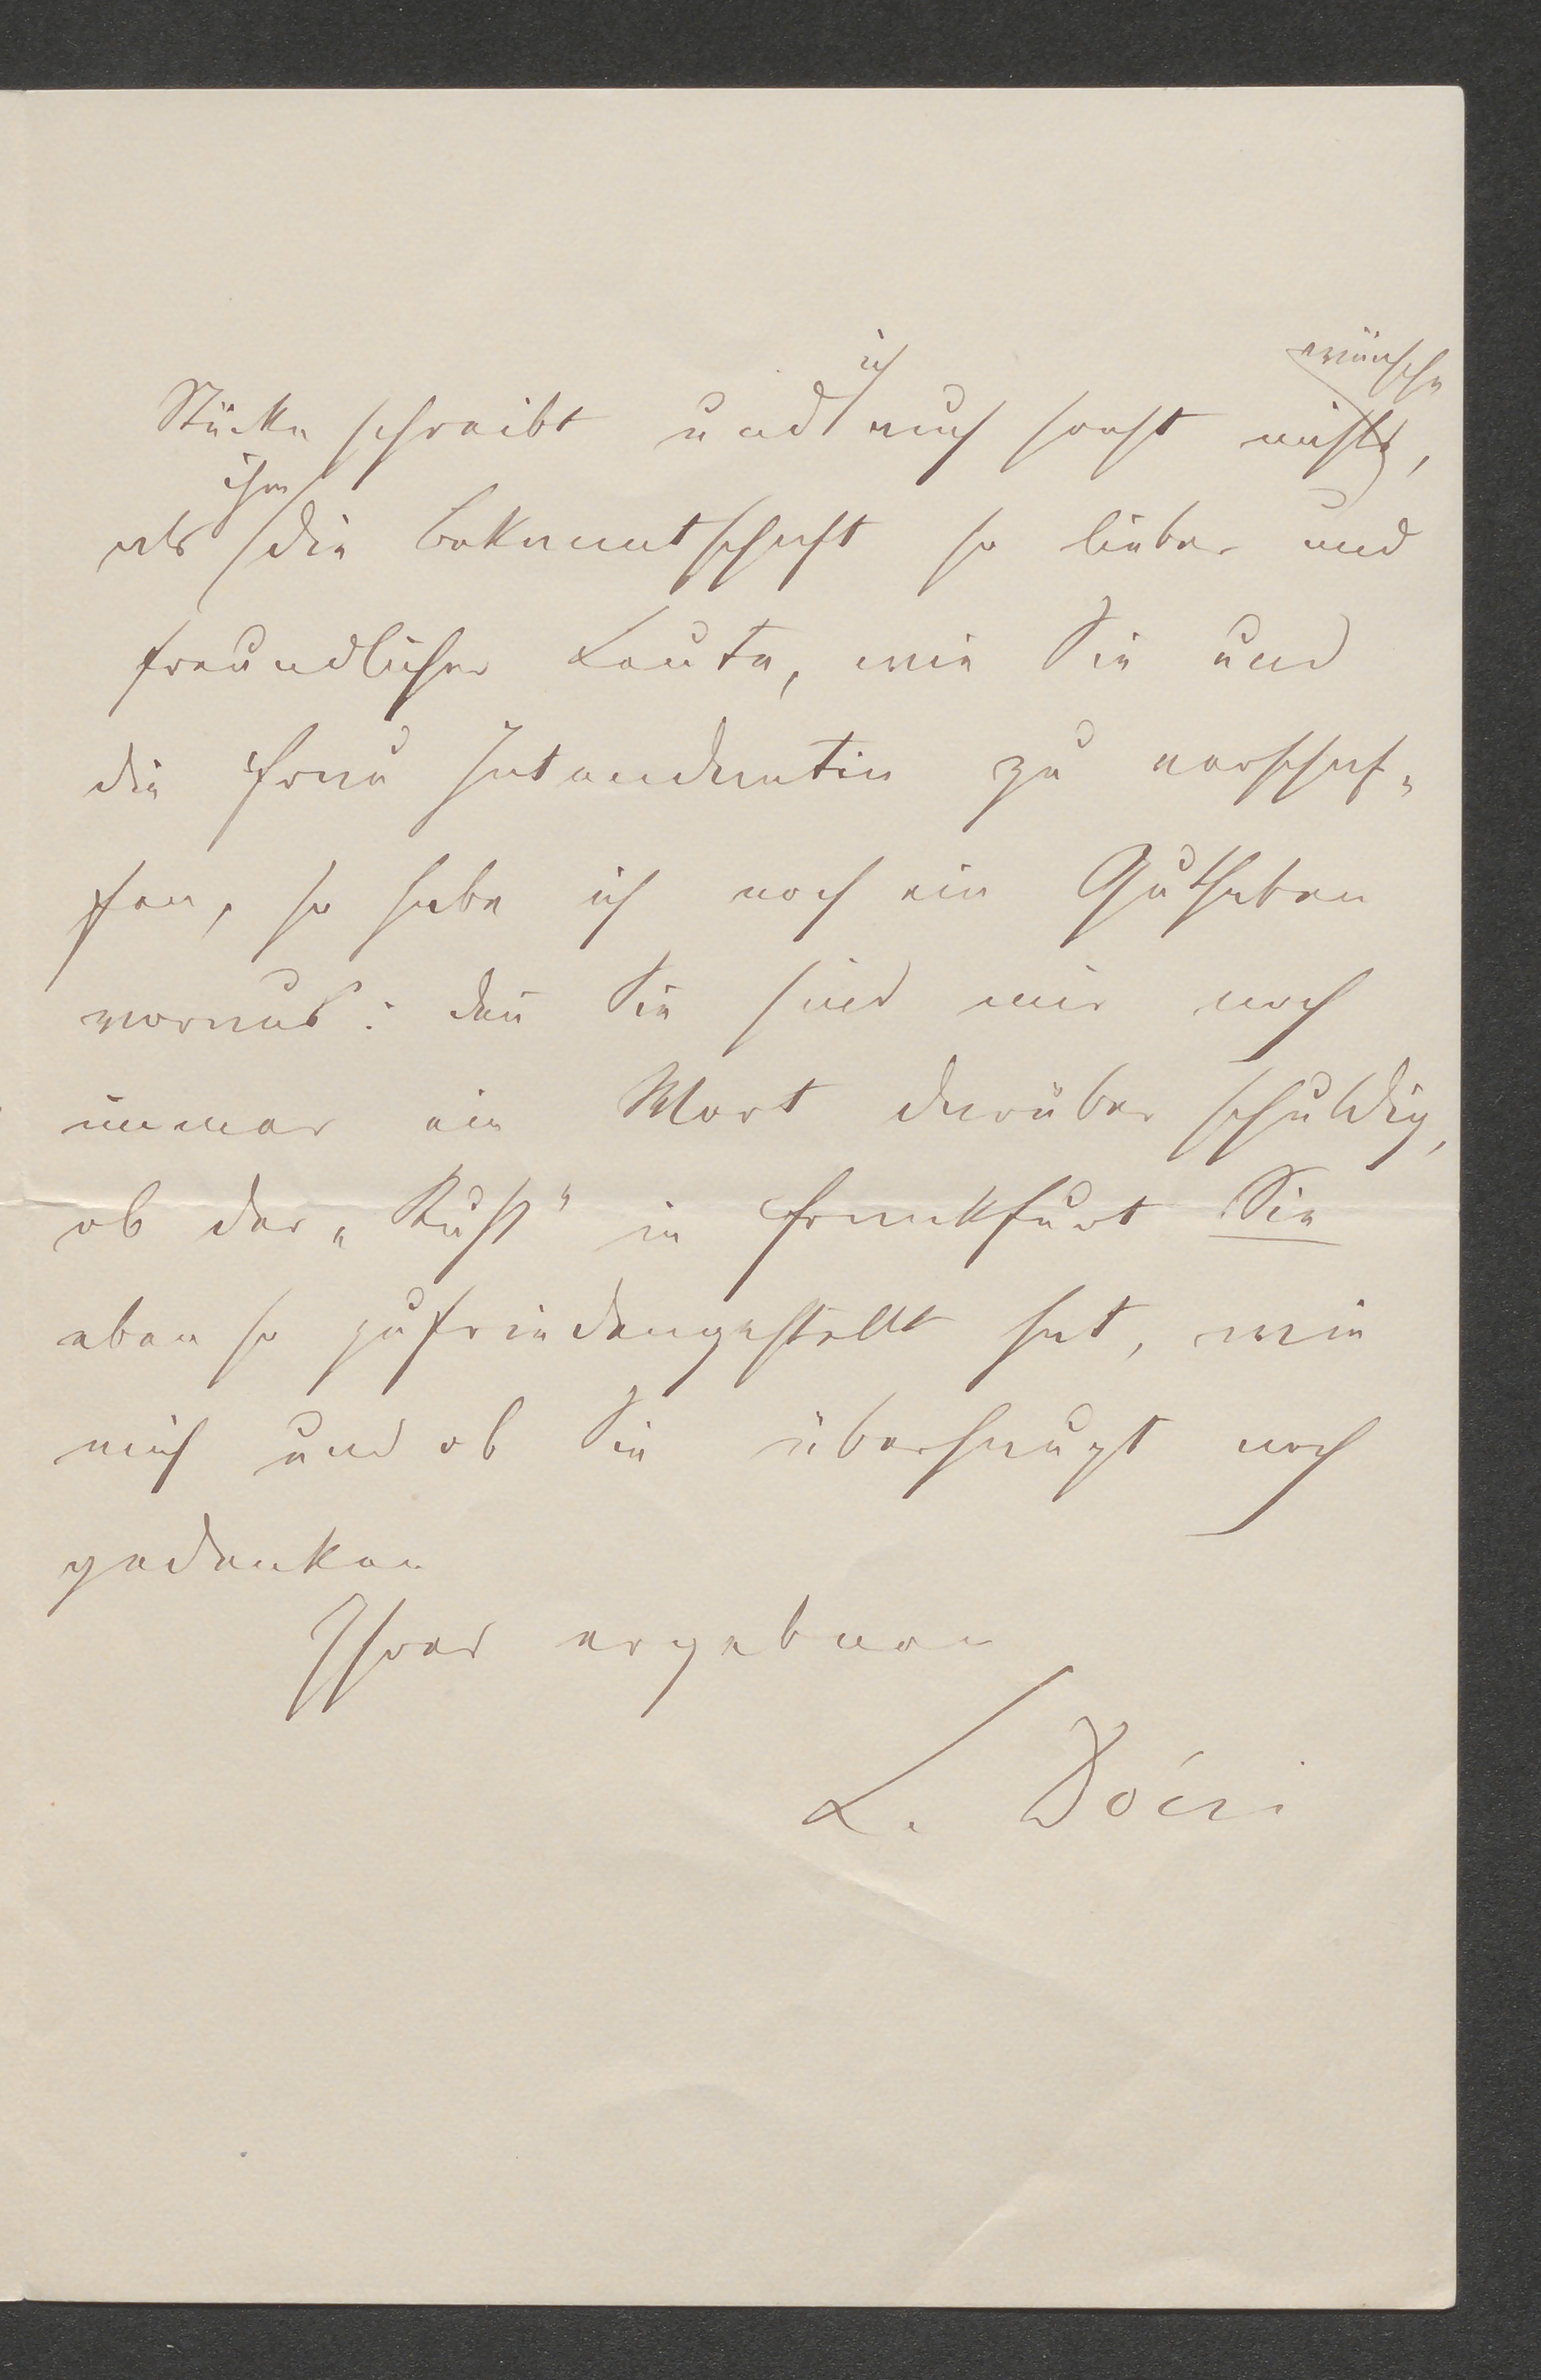 Stücke schreibt und ich auch sonst nichts wünsche,
als ihm die Bekanntschaft so lieber und
freundlicher Leute, wie Sie und
die Frau Intendantin zu verschaf-
fen, so habe ich noch ein Guthaben
voraus: den̅ Sie sind mir noch
immer ein Wort darüber schuldig,
ob der „Kuß" in Frankfurt Sie
eben so zufriedengestellt hat, wie
mich und ob Sie überhaupt noch
gedenken
Ihres ergebnen
L. Dóczi